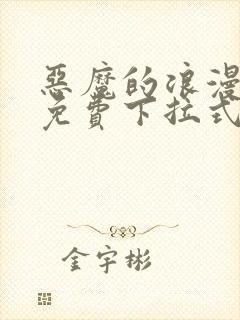 惡魔的浪漫
免費下拉式
金宇彬